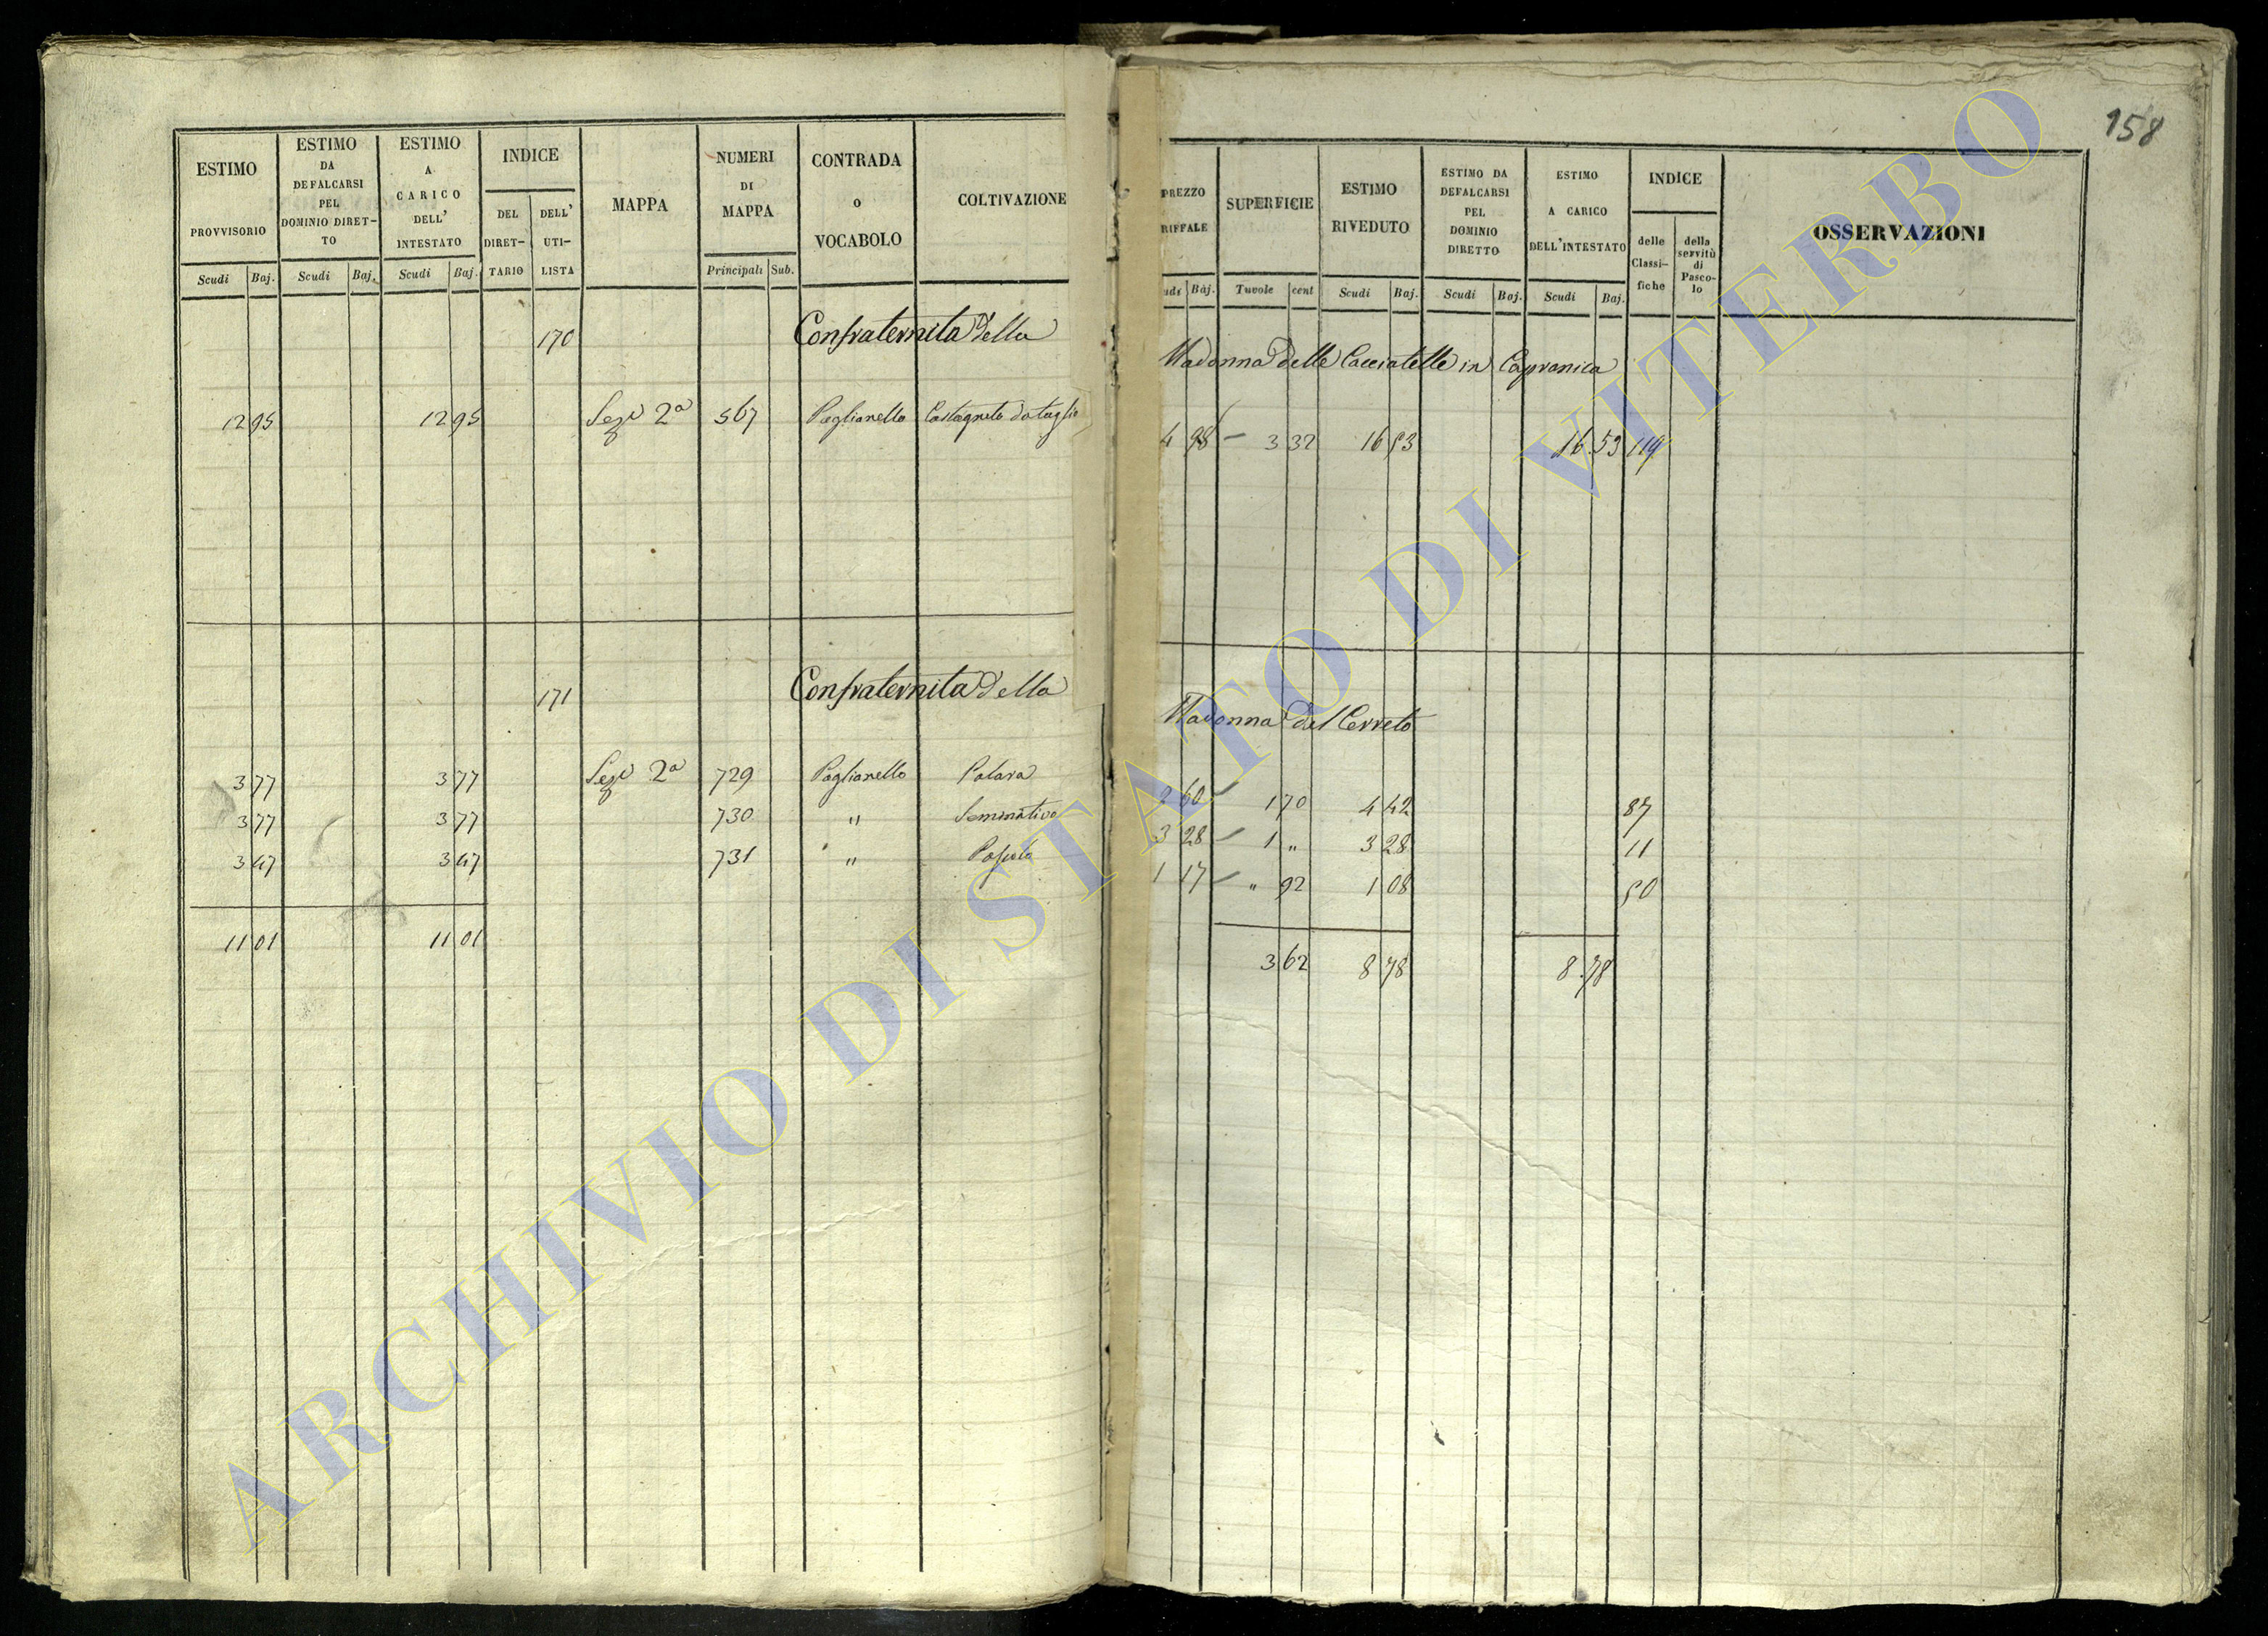 158
ESTIMO PROVVISORIO
ESTIMO DA DEFALCARSI PEL DOMINIO DIRET-TO
ESTIMO A CARICO DELL' INTESTATO
INDICE
DEL DIRET-TARIO
DELL' UTI-LISTA
MAPPA
NUMERI DI MAPPA
CONTRADA o VOCABOLO
COLTIVAZIONE
Scudi Baj. Scudi Baj. Scudi Baj. Principali Sub.
170 Confraternita della
12 95 12 95 Sez.e 2a 567 Paglianello Castagneto da taglio
171 Confraternita della
3 77 3 77 Sez.e 2a 729 Paglianello
3 77 3 77 730 " Seminativo
3 47 3 47 731 " Pascolo
11 01 11 01
PREZZO RIFFALE
SUPERFICIE
ESTIMO RIVEDUTO
ESTIMO DA DEFALCARSI PEL DOMINIO DIRETTO
ESTIMO A CARICO DELL'INTESTATO
INDICE
delle Classi-fiche
della servitù di Pasco-lo
OSSERVAZIONI
udi Baj. Tavole cent Scudi Baj. Scudi Baj. Scudi Baj.
Madonna delle Cacciatelle in Capranica
4 98 3 32 16 53 16.53 119
Madonna del Cerreto
2 60 1 70 4 42 87
3 28 1 " 3 28 11
1 17 " 92 1 08 50
3 62 8 78 8.78
ARCHIVIO DI STATO DI VITERBO